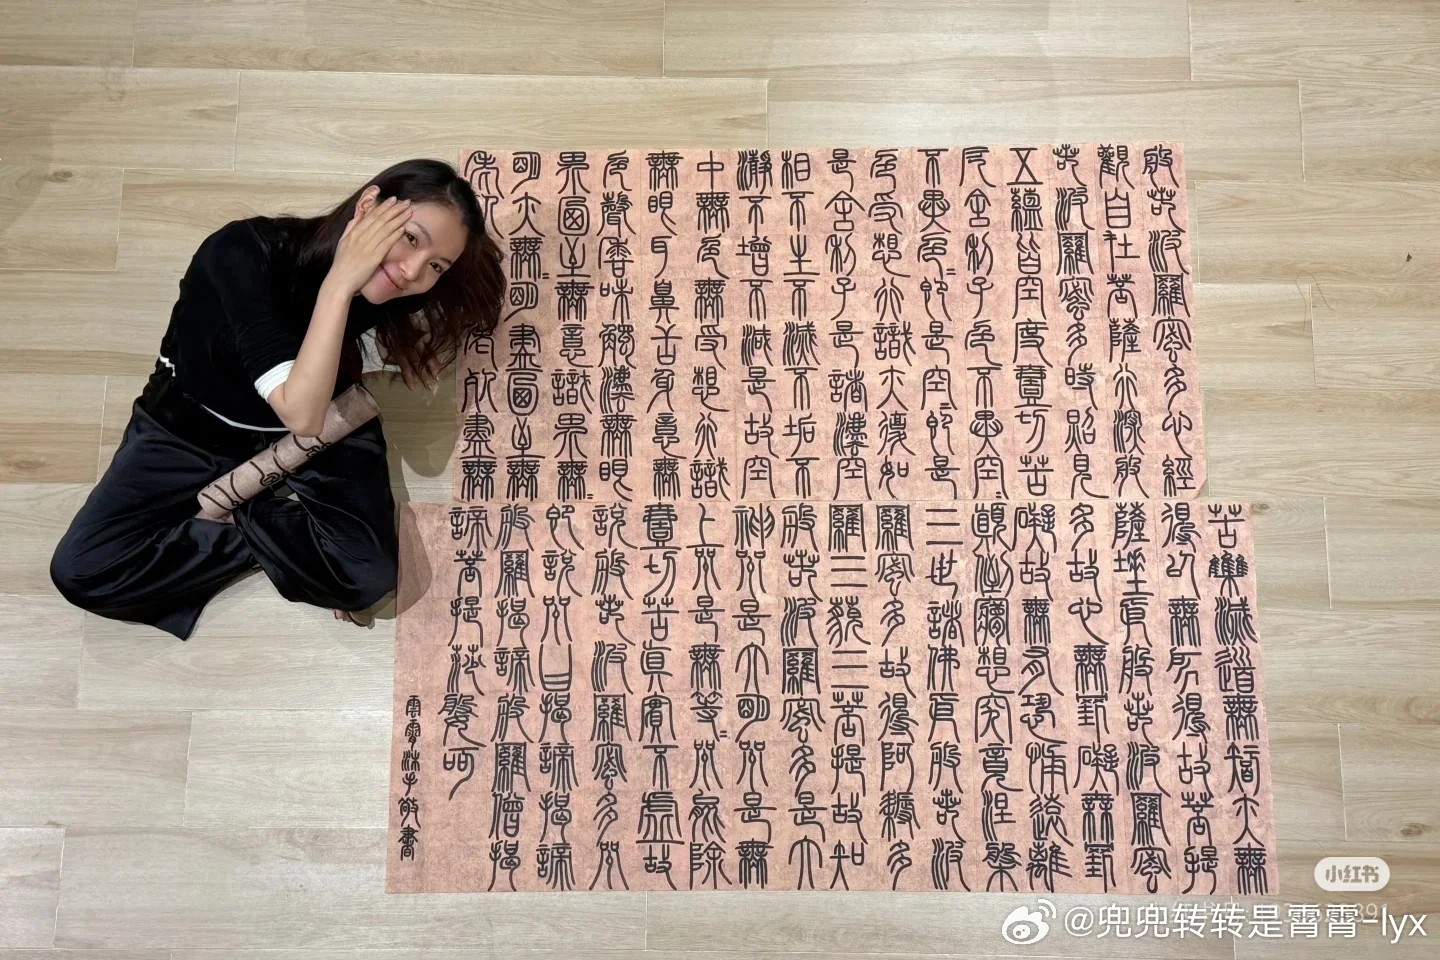 般若波羅蜜多心經
觀自在菩薩行深般
若波羅蜜多時照見
五蘊皆空度壹切苦
厄舍利子色不異空〃
不異色〃即是空即是
色受想行識亦復如
是舍利子是諸法空
相不生不滅不垢不
淨不增不減是故空
中無色無受想行識
無眼耳鼻舌身意無
色聲香味觸法無眼
界乃至無意識界無〃
明亦無〃明盡乃至無
老死 老死盡無
苦集滅道無智亦無
得以無所得故菩提
薩埵依般若波羅蜜
多故心無罣礙無罣
礙故無有恐怖遠離
顛倒夢想究竟涅槃
三世諸佛依般若波
羅蜜多故得阿耨多
羅三藐三菩提故知
般若波羅蜜多是大
神咒是大明咒是無
上咒是無等〃咒能除
壹切苦真實不虛故
說般若波羅蜜多咒
即說咒曰揭諦揭諦
般羅揭諦般羅僧揭
諦菩提莎婆訶
雲霄沐手敬書
小红书
@兜兜转转是霄霄-lyx